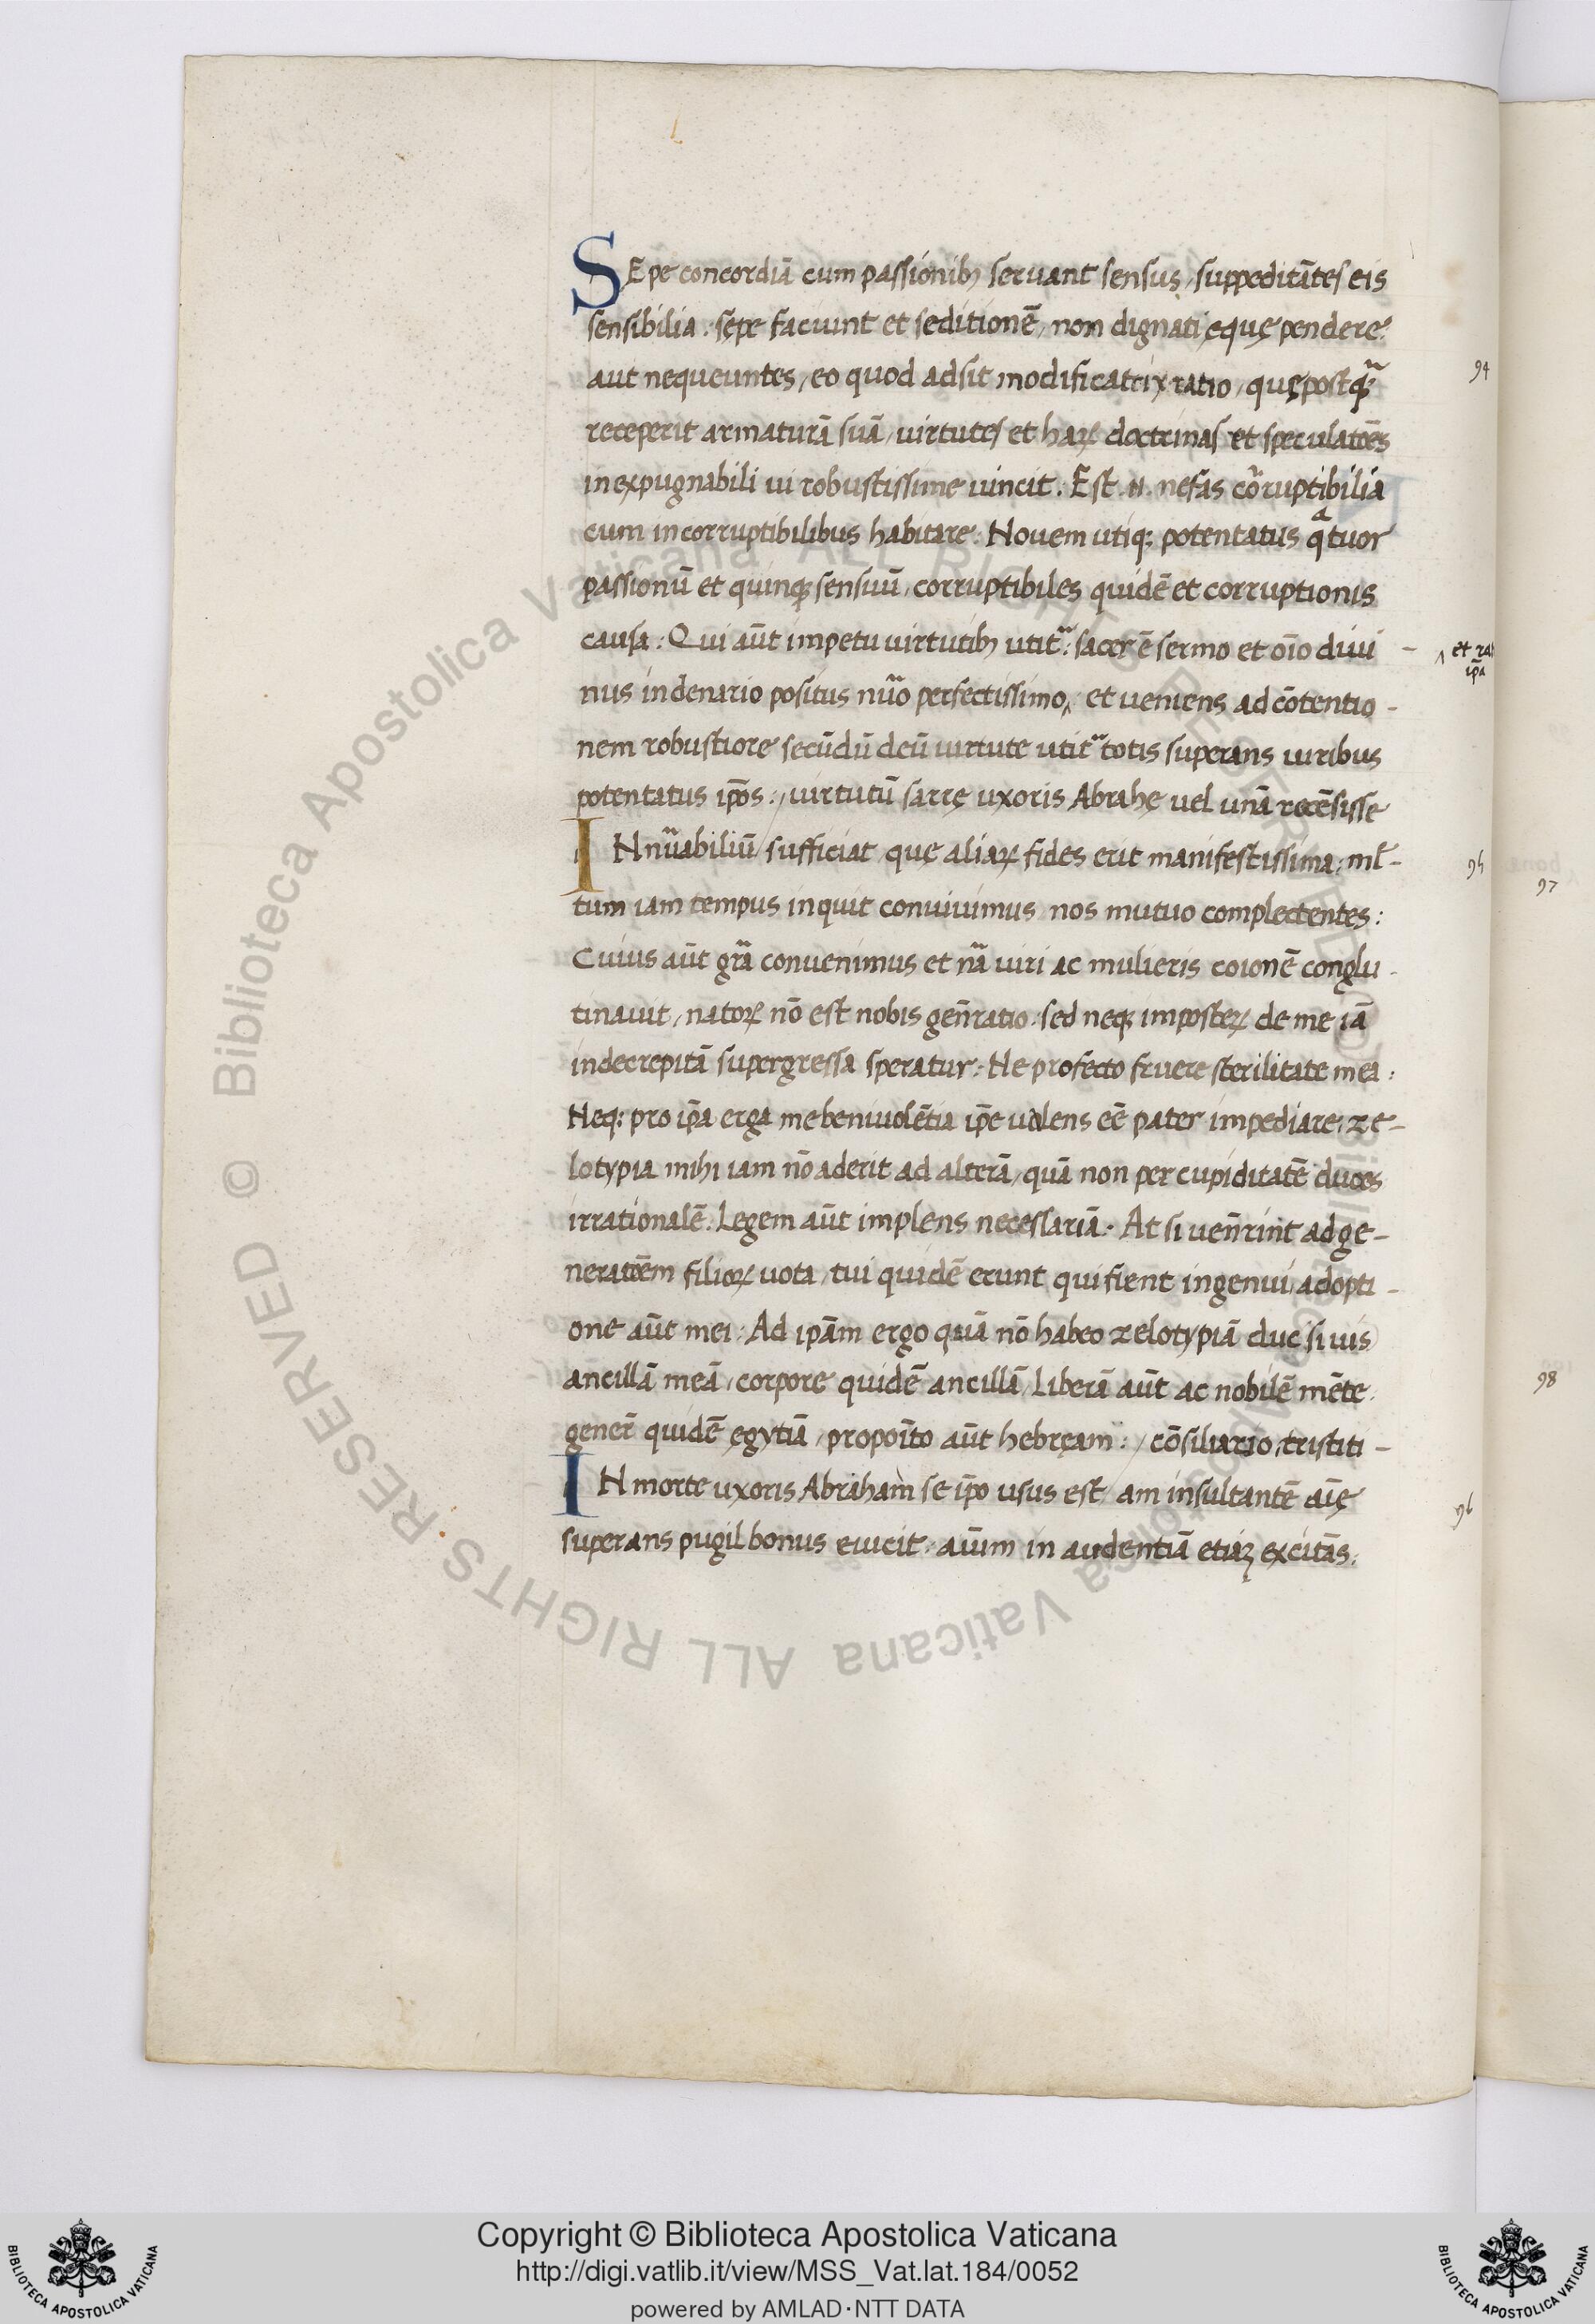 SEpe concordiā cum passionibꝫ servant sensus, suppeditātes eis
sensibilia: sępe faciunt et seditionē, non dignati ęquę pendere
aut nequeuntes, eo quod adsit modificatrix ratio, quę postqᷓ
94
receperit armaturā suā, virtutes et haꝝ doctrinas et speculatōes
inexpugnabili vi robustissime vincit. Est .n. nefas cōruptibilia
cum incorruptibilibus habitare: Novem utiqꝫ potentatus qͣtuor
passionū et quinqꝫ sensuū, corruptibiles quidē et corruptionis
causa: Qui aūt impetu virtutibꝫ utitᷣ: sacer ē sermo et oīo divi-
^ et ra
ipā
nus in denario positus nūo perfectissimo^, et veniens ad cōtentio-
nem robustiore secūdū deū virtute utitᷣ totis superans viribus
potentatus ip̄os: / virtutū sarrę uxoris Abrahę vel unā recēsisse
INnūabiliū / sufficiat, quę aliaꝝ fides erit manifestissima: ml̄-
95
97
tum iam tempus inquit convivimus nos mutuo complectentes:
Cuius aūt grā convenimus et nā viri ac mulieris coionē conglu-
tinavit, natoꝝ nō est nobis gen̄ratio: sed neqꝫ imposteꝝ de me iā
indecrepitā supergressa speratur: Ne profecto fruere sterilitate mea:
Neqꝫ pro ip̄a erga me benivolētia ip̄e volens eē pater impediare: ze-
lotypia mihi iam nō aderit ad alterā, quā non per cupiditatē duces
irrationalē. Legem aūt implens necessariā. At si ven̄rint ad ge-
neratōem filioꝝ vota, tui quidē erunt qui fient ingenui, adopti-
one aūt mei: Ad ip̄am ergo quā nō habeo zelotypiā duc si vis
ancillā meā, corpore quidē ancillā, Liberā aūt ac nobilē mēte:
98
gener̄ quidē ęgytiā, propoīto aūt hebręam: / cōsiliario, tristiti-
IN morte uxoris Abraham se ip̄o usus est / am insultantē aīę
96
superans pugil bonus eiicit: aīum in audentiā etiaꝫ excitās:
Copyright © Biblioteca Apostolica Vaticana
http://digi.vatlib.it/view/MSS_Vat.lat.184/0052
powered by AMLAD·NTT DATA
BIBLIOTECA APOSTOLICA VATICANA
BIBLIOTECA APOSTOLICA VATICANA
© Biblioteca Apostolica Vaticana ALL RIGHTS RESERVED
© Biblioteca Apostolica Vaticana ALL RIGHTS RESERVED